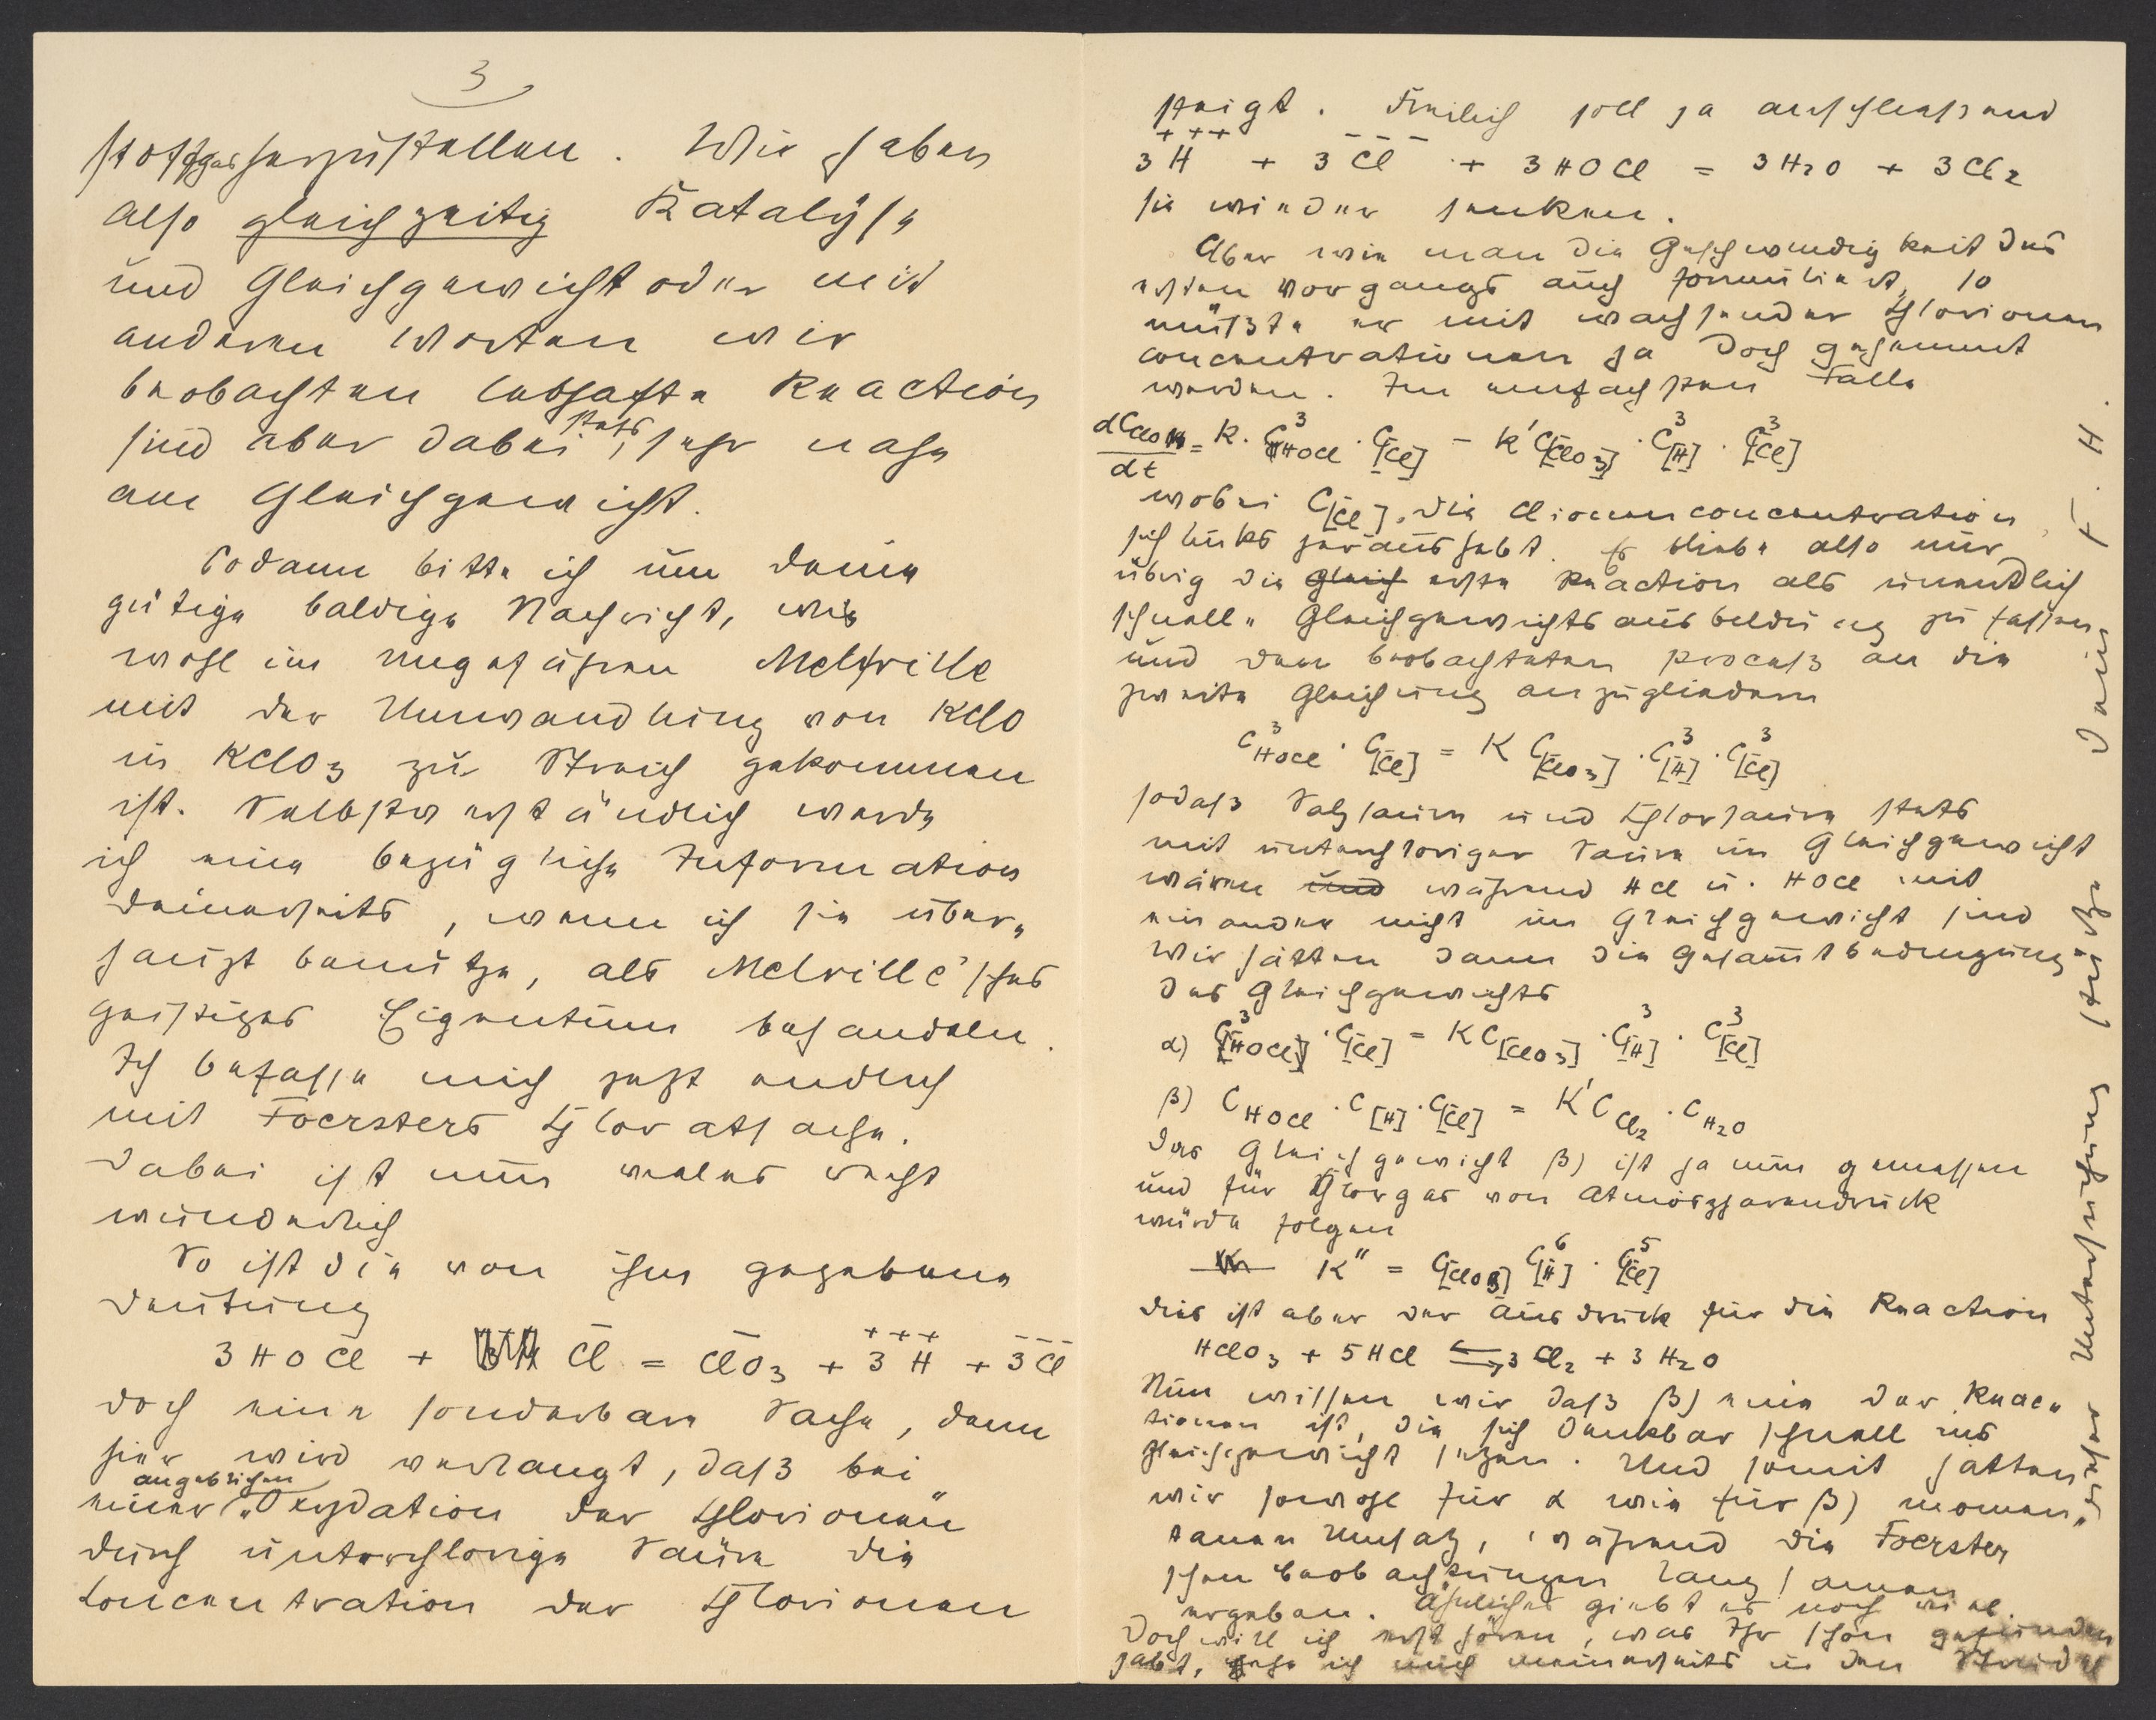 3
stoffgas herzustellen. Wir haben
also gleichzeitig Katalyse
und Gleichgewicht oder mit
anderen Worten wir
beobachten lebhafte Reaction
sind aber dabei stets, sehr nahe
am Gleichgewicht.
Sodann bitte ich um deine
gütige baldige Nachricht, wie
wohl im ungefähren Melville
mit der Umwandlung von KClO
in KClO3 zu Streich gekommen
ist. Selbstverständlich werde
ich eine bezügliche Information
deinerseits, wenn ich sie über-
haupt benutze, als Melville'sches
geistiges Eigentum behandeln.
Ich befasse mich jetzt endlich
mit Foersters Chloratsache.
Dabei ist nun vieles recht
wunderlich
So ist die von ihm gegebene
Deutung
3 HOCl + C̄l = C̄lO3 + 3 H⁺⁺⁺ + 3 Cl⁻⁻⁻
doch eine sonderbare Sache, denn
hier wird verlangt, daß bei
angeblichen
einer „Oxydation der Chlorionen“
durch unterchlorige Säure die
Concentration der Chlorionen
steigt. Freilich soll ja anschließend
3 H⁺⁺⁺ + 3 Cl⁻⁻⁻ + 3 HOCl = 3 H2O + 3 Cl2
sie wieder senken.
Aber wie man die Geschwindigkeit des
ersten Vorgangs auch formuliert, so
müßte er mit wachsender Chlorionen
concentrationen ja doch gehemmt
werden. Im einfachsten Falle
dCClO3/dt = K · C³HOCl · C[C̄l] − K′ C[C̄lO3] · C³[H] · C³[C̄l]
wobei C[C̄l], die Clionenconcentration
sich links heraushebt. Es bliebe also nur
übrig die gleich erste Reaction als unendlich
schnelle Gleichgewichtsausbildung zu fassen
und den beobachteten Process an die
zweite Gleichung anzugliedern
C³HOCl · C[C̄l] = K C[C̄lO3] · C³[H] · C³[C̄l]
sodaß Salzsäure und Chlorsäure stets
mit unterchloriger Säure im Gleichgewicht
wären und während HCl u. HOCl mit
einander nicht im Gleichgewicht sind
Wir hätten dann die Gesamtbedingung
des Gleichgewichts
α) C³[HOCl] · C[C̄l] = K C[ClO3] · C³[H] · C³[C̄l]
β) CHOCl · C[H] · C[C̄l] = K′ CCl2 · CH2O
Das Gleichgewicht β) ist ja nun gemessen
und für Chlorgas von Atmosphärendruck
würde folgen
K″ = C[ClO3] C⁶[H] · C⁵[C̄l]
dies ist aber der Ausdruck für die Reaction
HClO3 + 5 HCl ⇌ 3 Cl2 + 3 H2O
Nun wissen wir daß β) eine der Reac-
tionen ist, die sich denkbar schnell ins
Gleichgewicht setzen. Und somit hätten
wir sowohl für α wie für β) momen-
tanen Umsatz, während die Foerster
schen Beobachtungen langsamen
ergeben. Ähnliches giebt es noch viel.
Doch will ich erst hören, was Ihr schon gefunden
habt, ehe ich mich meinerseits in den Strudel
dieser Untersuchung stürze. Dein F. H.